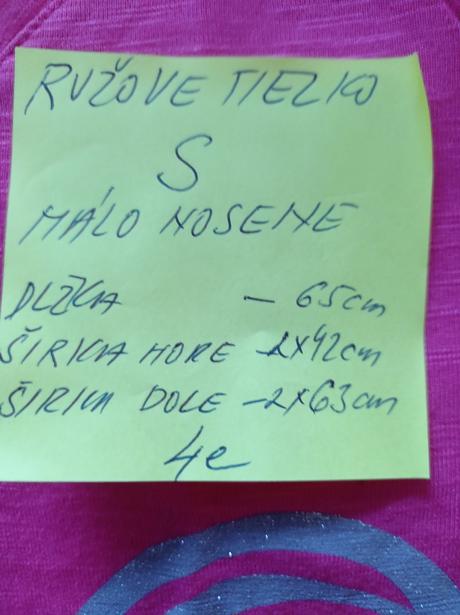 RUŽOVE TIELKO
S
MÁLO NOSENE
DLŽKA - 65cm
ŠIRKA HORE - 2x42cm
ŠIRKA DOLE - 2x63cm
4e